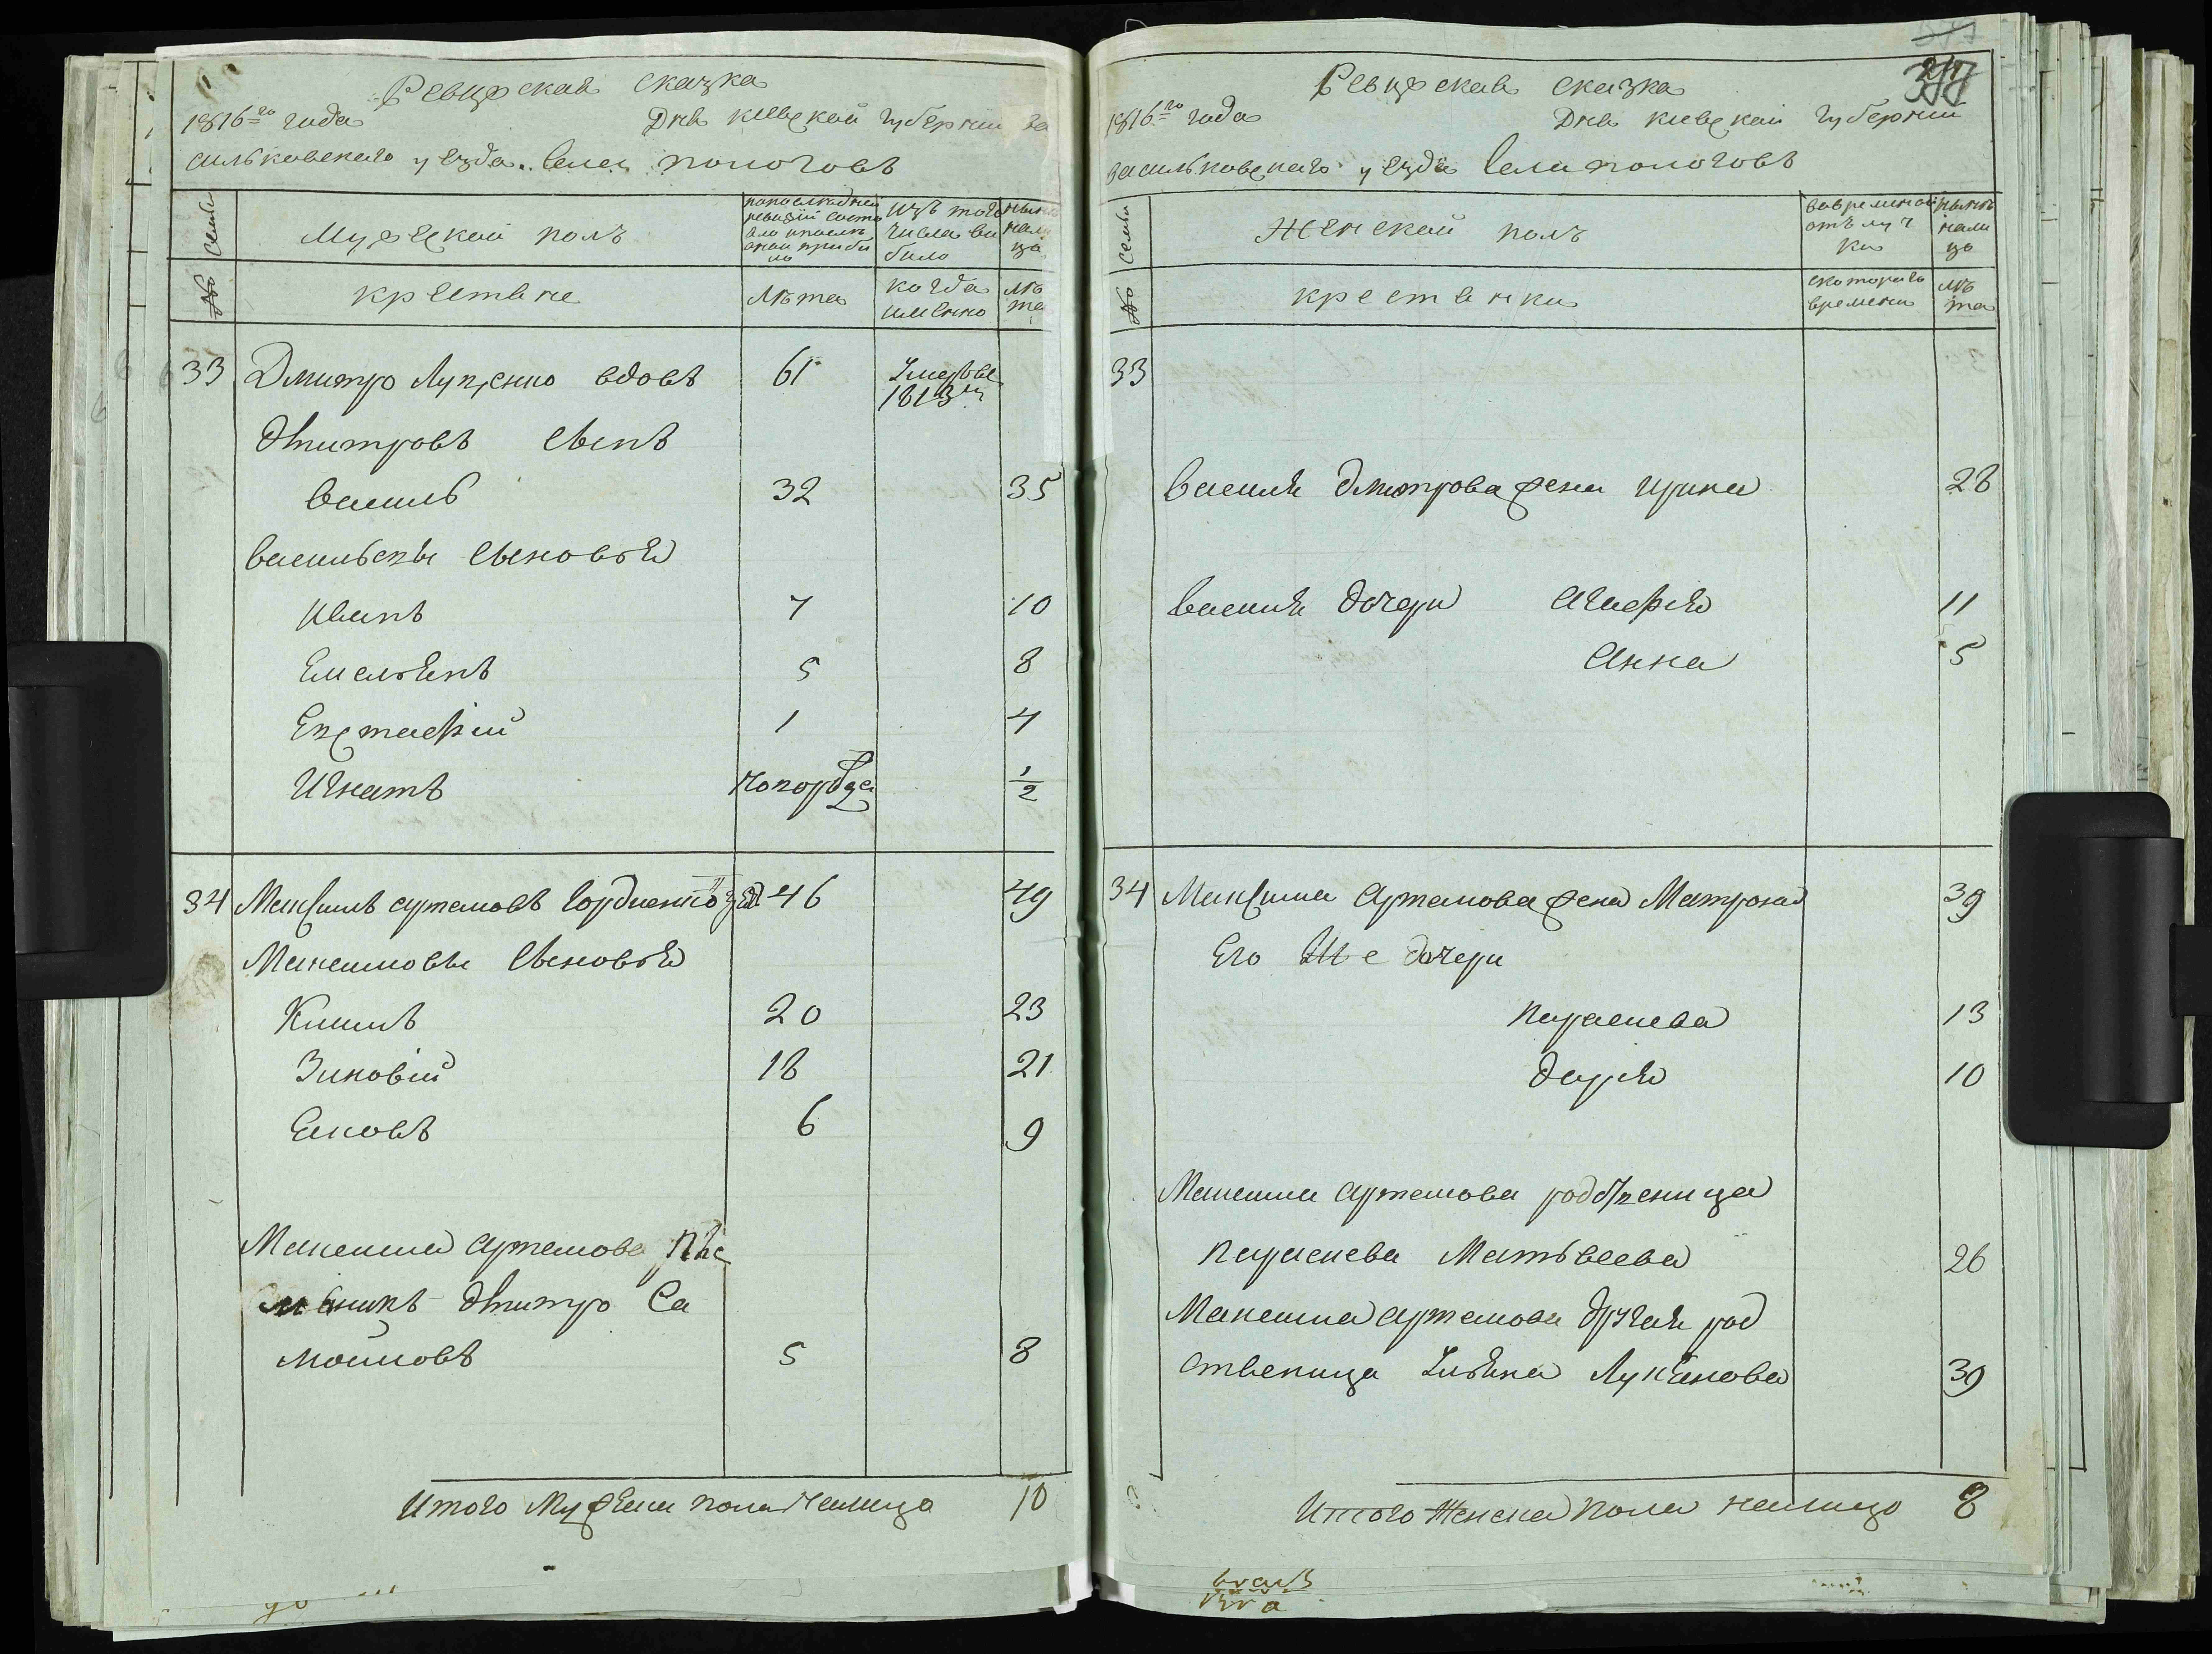 Ревизская сказка
1816го года Дня киевской губернии ва
сильковского уезда. Села пологовъ
№ семьи
Мужеской полъ
попоследней
ревизии состо
яло и после
оной прибы
ло
изъ того
числа вы
было
ныне
нали
цо
крестьяне
лѣта
когда
именно
лѣ
та
33 Дмитро Луценко вдовъ 61 Умеръ в
1813м
Дмитровъ Сынъ
Василь 32 35
Васильевы Сыновья
Иванъ 7 10
Емельянъ 5 8
Евстафий 1 4
Игнатъ 1/2
34 Максимъ Артемовъ Гордиенко 46 49
Максимовы Сыновья
20 23
Зиновий 18 21
Яковъ 6 9
Максима Артемова пле
мяникъ Дмитро Са
мойловъ 5 8
Итого Мужеска пола налицо 10
Ревизская сказка
1816го года Дня киевской губернии
васильковского уезда Села пологовъ
№ семьи
Женской полъ
вовременной
отълуч
ки
ныне
нали
цо
крестянки
скоторого
времени
лѣ
та
33
Василя Дмитрова жена Ирина 28
Василя дочери Агафия 11
Анна 5
34 Максима Артемова жена Матрона 39
Его же дочери
Параскева 13
Дарья 10
Максима Артемова родственица
Параскева Матвеева 26
Максима Артемова другая род
ственица Ульяна Лукянова 39
Итого Женска пола налицо 8